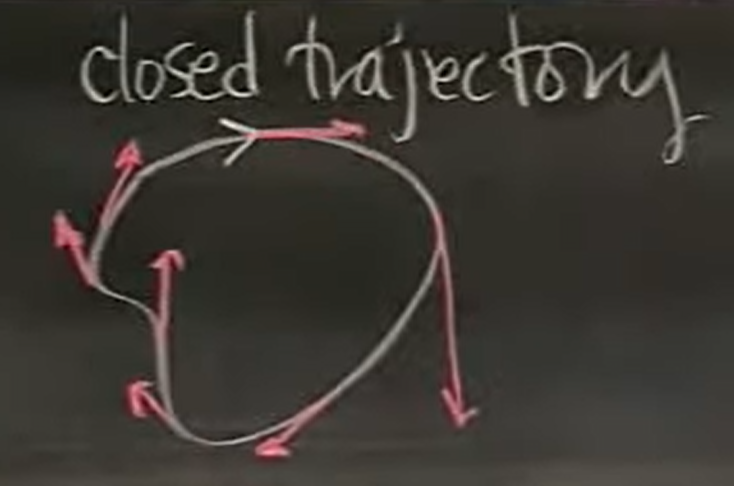 closed trajectory